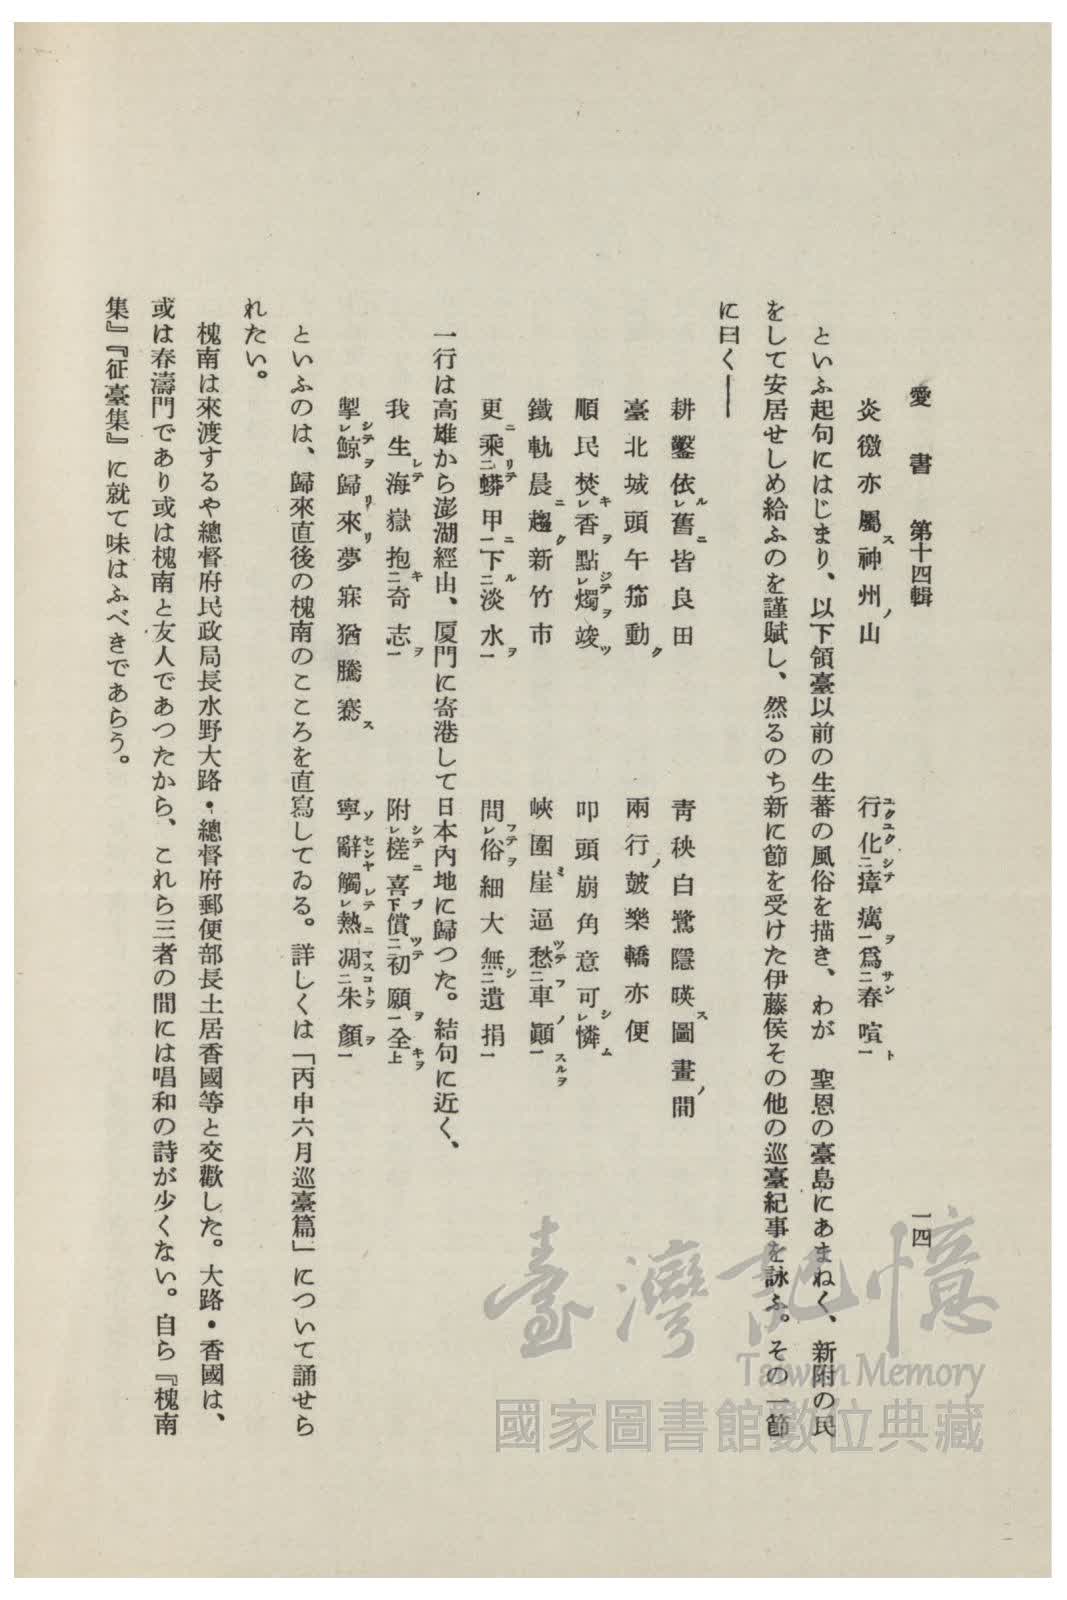 愛書 第十四輯
一四
炎徼亦屬神州山 行化瘴癘爲春喧
といふ起句にはじまり、以下領臺以前の生蕃の風俗を描き、わが 聖恩の臺島にあまねく、新附の民
をして安居せしめ給ふのを謹賦し、然るのち新に節を受けた伊藤侯その他の巡臺紀事を詠ふ。その一節
に曰く――
耕鑿依舊皆良田 靑秧白鷺隱暎圖畫間
臺北城頭午笳動 兩行皷樂轎亦便
順民焚香點燭竢 叩頭崩角意可憐
鐵軌晨趨新竹市 峽圍崖逼愁車顚
更乘蟒甲下淡水 問俗細大無遺捐
一行は高雄から澎湖經由、厦門に寄港して日本內地に歸つた。結句に近く、
我生海嶽抱奇志 附槎喜償初願全
掣鯨歸來夢寐猶騰騫 寧辭觸熱凋朱顏
といふのは、歸來直後の槐南のこころを直寫してゐる。詳しくは「丙申六月巡臺篇」について誦せら
れたい。
槐南は來渡するや總督府民政局長水野大路・總督府郵便部長土居香國等と交歡した。大路・香國は、
或は春濤門であり或は槐南と友人であつたから、これら三者の間には唱和の詩が少くない。自ら『槐南
集』『征臺集』に就て味はふべきであらう。
臺灣記憶
Taiwan Memory
國家圖書館數位典藏